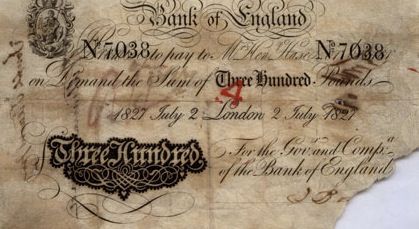 Bank of England
No 7038 to pay to Mr Hen Hase No 7038
on Demand the Sum of Three Hundred Pounds
4
1827 July 2 London 2 July 1827
Three Hundred
For the Govr and Compa
of the Bank of England